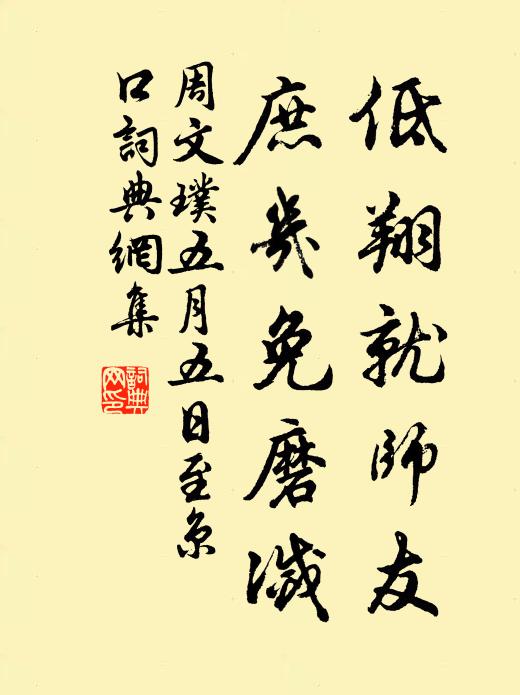 低翔就師友
庶幾免磨滅
周文璞五月五日至京
口詞典網集
詞典
网印